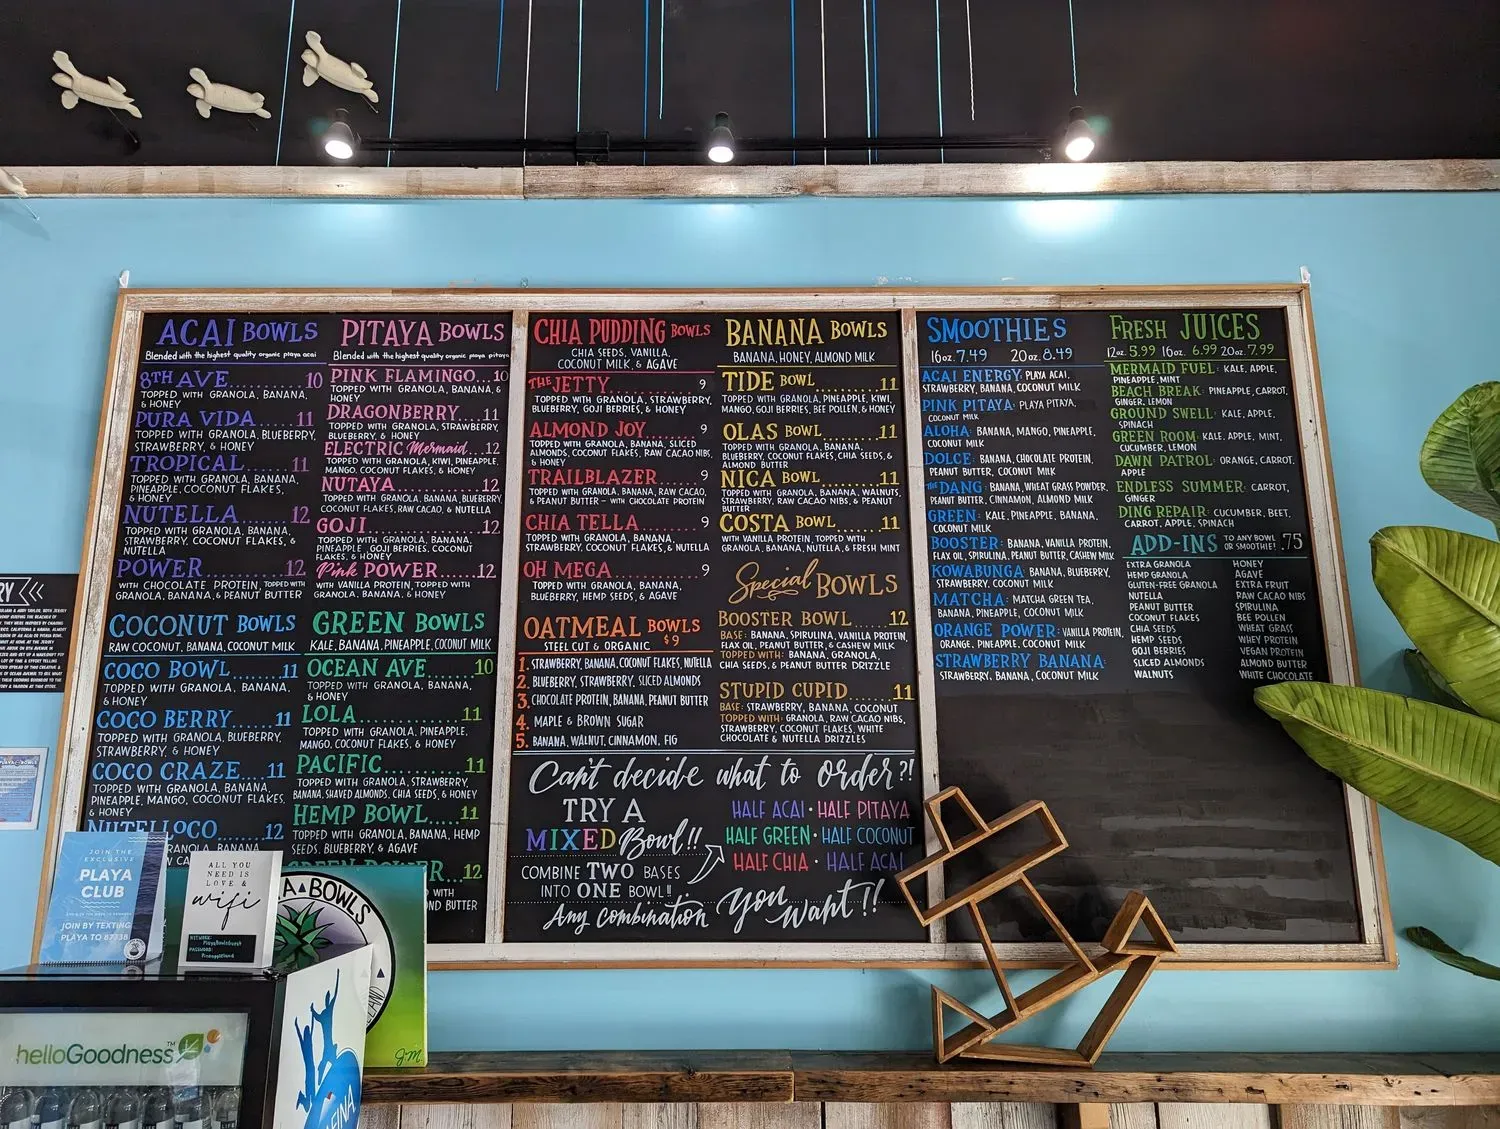 ACAI BOWLS
Blended with the highest quality organic playa acai
8TH AVE........ 10
TOPPED WITH GRANOLA, BANANA,
& HONEY
PURA VIDA........ 11
TOPPED WITH GRANOLA, BLUEBERRY,
STRAWBERRY, & HONEY
TROPICAL....... 11
TOPPED WITH GRANOLA, BANANA,
PINEAPPLE, COCONUT FLAKES,
& HONEY
NUTELLA...... 12
TOPPED WITH GRANOLA, BANANA,
STRAWBERRY, COCONUT FLAKES, &
NUTELLA
POWER....... 12
WITH CHOCOLATE PROTEIN, TOPPED WITH
GRANOLA, BANANA, & PEANUT BUTTER
COCONUT BOWLS
RAW COCONUT, BANANA, COCONUT MILK
COCO BOWL...... 11
TOPPED WITH GRANOLA, BANANA,
& HONEY
COCO BERRY...... 11
TOPPED WITH GRANOLA, BLUEBERRY,
STRAWBERRY, & HONEY
COCO CRAZE....11
TOPPED WITH GRANOLA, BANANA,
PINEAPPLE, MANGO, COCONUT FLAKES,
& HONEY
NUTELLOCO..... 12
PITAYA BOWLS
Blended with the highest quality organic playa pitaya
PINK FLAMINGO....10
TOPPED WITH GRANOLA, BANANA, &
HONEY
DRAGONBERRY....11
TOPPED WITH GRANOLA, STRAWBERRY,
BLUEBERRY, & HONEY
ELECTRIC Mermaid...12
TOPPED WITH GRANOLA, KIWI, PINEAPPLE,
MANGO, COCONUT FLAKES, & HONEY
NUTAYA.......12
TOPPED WITH GRANOLA, BANANA, BLUEBERRY,
COCONUT FLAKES, RAW CACAO, & NUTELLA
GOJI..............12
TOPPED WITH GRANOLA, BANANA,
PINEAPPLE, GOJI BERRIES, COCONUT
FLAKES, & HONEY
Pink POWER.....12
WITH VANILLA PROTEIN, TOPPED WITH
GRANOLA, BANANA, & HONEY
GREEN BOWLS
KALE, BANANA, PINEAPPLE, COCONUT MILK
OCEAN AVE.....10
TOPPED WITH GRANOLA, BANANA,
& HONEY
LOLA............11
TOPPED WITH GRANOLA, PINEAPPLE,
MANGO, COCONUT FLAKES, & HONEY
PACIFIC........11
TOPPED WITH GRANOLA, STRAWBERRY,
BANANA, SHAVED ALMONDS, CHIA SEEDS, & HONEY
HEMP BOWL.....11
TOPPED WITH GRANOLA, BANANA, HEMP
SEEDS, BLUEBERRY, & AGAVE
12
WITH
BUTTER
CHIA PUDDING BOWLS
CHIA SEEDS, VANILLA,
COCONUT MILK, & AGAVE
THE JETTY............. 9
TOPPED WITH GRANOLA, STRAWBERRY,
BLUEBERRY, GOJI BERRIES, & HONEY
ALMOND JOY........ 9
TOPPED WITH GRANOLA, BANANA, SLICED
ALMONDS, COCONUT FLAKES, RAW CACAO NIBS,
& HONEY
TRAILBLAZER....... 9
TOPPED WITH GRANOLA, BANANA, RAW CACAO,
& PEANUT BUTTER - WITH CHOCOLATE PROTEIN
CHIA TELLA........ 9
TOPPED WITH GRANOLA, BANANA,
STRAWBERRY, COCONUT FLAKES, & NUTELLA
OH MEGA............ 9
TOPPED WITH GRANOLA, BANANA,
BLUEBERRY, HEMP SEEDS, & AGAVE
OATMEAL BOWLS
STEEL CUT & ORGANIC $9
1. STRAWBERRY, BANANA, COCONUT FLAKES, NUTELLA
2. BLUEBERRY, STRAWBERRY, SLICED ALMONDS
3. CHOCOLATE PROTEIN, BANANA, PEANUT BUTTER
4. MAPLE & BROWN SUGAR
5. BANANA, WALNUT, CINNAMON, FIG
BANANA BOWLS
BANANA, HONEY, ALMOND MILK
TIDE BOWL..........11
TOPPED WITH GRANOLA, PINEAPPLE, KIWI,
MANGO, GOJI BERRIES, BEE POLLEN, & HONEY
OLAS BOWL.........11
TOPPED WITH GRANOLA, BANANA,
BLUEBERRY, COCONUT FLAKES, CHIA SEEDS, &
ALMOND BUTTER
NICA BOWL..........11
TOPPED WITH GRANOLA, BANANA, WALNUTS,
STRAWBERRY, RAW CACAO NIBS, & PEANUT
BUTTER
COSTA BOWL......11
WITH VANILLA PROTEIN, TOPPED WITH
GRANOLA, BANANA, NUTELLA, & FRESH MINT
Special BOWLS
BOOSTER BOWL..... 12
BASE: BANANA, SPIRULINA, VANILLA PROTEIN,
FLAX OIL, PEANUT BUTTER, & CASHEW MILK
TOPPED WITH: BANANA, GRANOLA,
CHIA SEEDS, & PEANUT BUTTER DRIZZLE
STUPID CUPID....... 11
BASE: STRAWBERRY, BANANA, COCONUT
TOPPED WITH: GRANOLA, RAW CACAO NIBS,
STRAWBERRY, COCONUT FLAKES, WHITE
CHOCOLATE & NUTELLA DRIZZLES
Can't decide what to order?!
TRY A
MIXED Bowl!!
COMBINE TWO BASES
INTO ONE BOWL!!
HALF ACAI • HALF PITAYA
HALF GREEN • HALF COCONUT
HALF CHIA • HALF ACAI
Any combination you want!!
SMOOTHIES
16oz. 7.49 20oz. 8.49
ACAI ENERGY: PLAYA ACAI,
STRAWBERRY, BANANA, COCONUT MILK
PINK PITAYA: PLAYA PITAYA,
COCONUT MILK
ALOHA: BANANA, MANGO, PINEAPPLE,
COCONUT MILK
DOLCE: BANANA, CHOCOLATE PROTEIN,
PEANUT BUTTER, COCONUT MILK
THE DANG: BANANA, WHEAT GRASS POWDER,
PEANUT BUTTER, CINNAMON, ALMOND MILK
GREEN: KALE, PINEAPPLE, BANANA,
COCONUT MILK
BOOSTER: BANANA, VANILLA PROTEIN,
FLAX OIL, SPIRULINA, PEANUT BUTTER, CASHEW MILK
KOWABUNGA: BANANA, BLUEBERRY,
STRAWBERRY, COCONUT MILK
MATCHA: MATCHA GREEN TEA,
BANANA, PINEAPPLE, COCONUT MILK
ORANGE POWER: VANILLA PROTEIN,
ORANGE, PINEAPPLE, COCONUT MILK
STRAWBERRY BANANA:
STRAWBERRY, BANANA, COCONUT MILK
FRESH JUICES
12oz. 5.99 16oz. 6.99 20oz. 7.99
MERMAID FUEL: KALE, APPLE,
PINEAPPLE, MINT
BEACH BREAK: PINEAPPLE, CARROT,
GINGER, LEMON
GROUND SWELL: KALE, APPLE,
SPINACH
GREEN ROOM: KALE, APPLE, MINT,
CUCUMBER, LEMON
DAWN PATROL: ORANGE, CARROT,
APPLE
ENDLESS SUMMER: CARROT,
GINGER
DING REPAIR: CUCUMBER, BEET,
CARROT, APPLE, SPINACH
ADD-INS TO ANY BOWL OR SMOOTHIE! .75
EXTRA GRANOLA
HEMP GRANOLA
GLUTEN-FREE GRANOLA
NUTELLA
PEANUT BUTTER
COCONUT FLAKES
CHIA SEEDS
HEMP SEEDS
GOJI BERRIES
SLICED ALMONDS
WALNUTS
HONEY
AGAVE
EXTRA FRUIT
RAW CACAO NIBS
SPIRULINA
BEE POLLEN
WHEAT GRASS
WHEY PROTEIN
VEGAN PROTEIN
ALMOND BUTTER
WHITE CHOCOLATE
JOIN THE
EXCLUSIVE
PLAYA
CLUB
JOIN BY TEXTING
PLAYA TO 87738
ALL YOU
NEED IS
LOVE &
wifi
NETWORK:
PlayaBowlsGuest
PASSWORD:
Pineappleland
BOWLS
JM
helloGoodness™